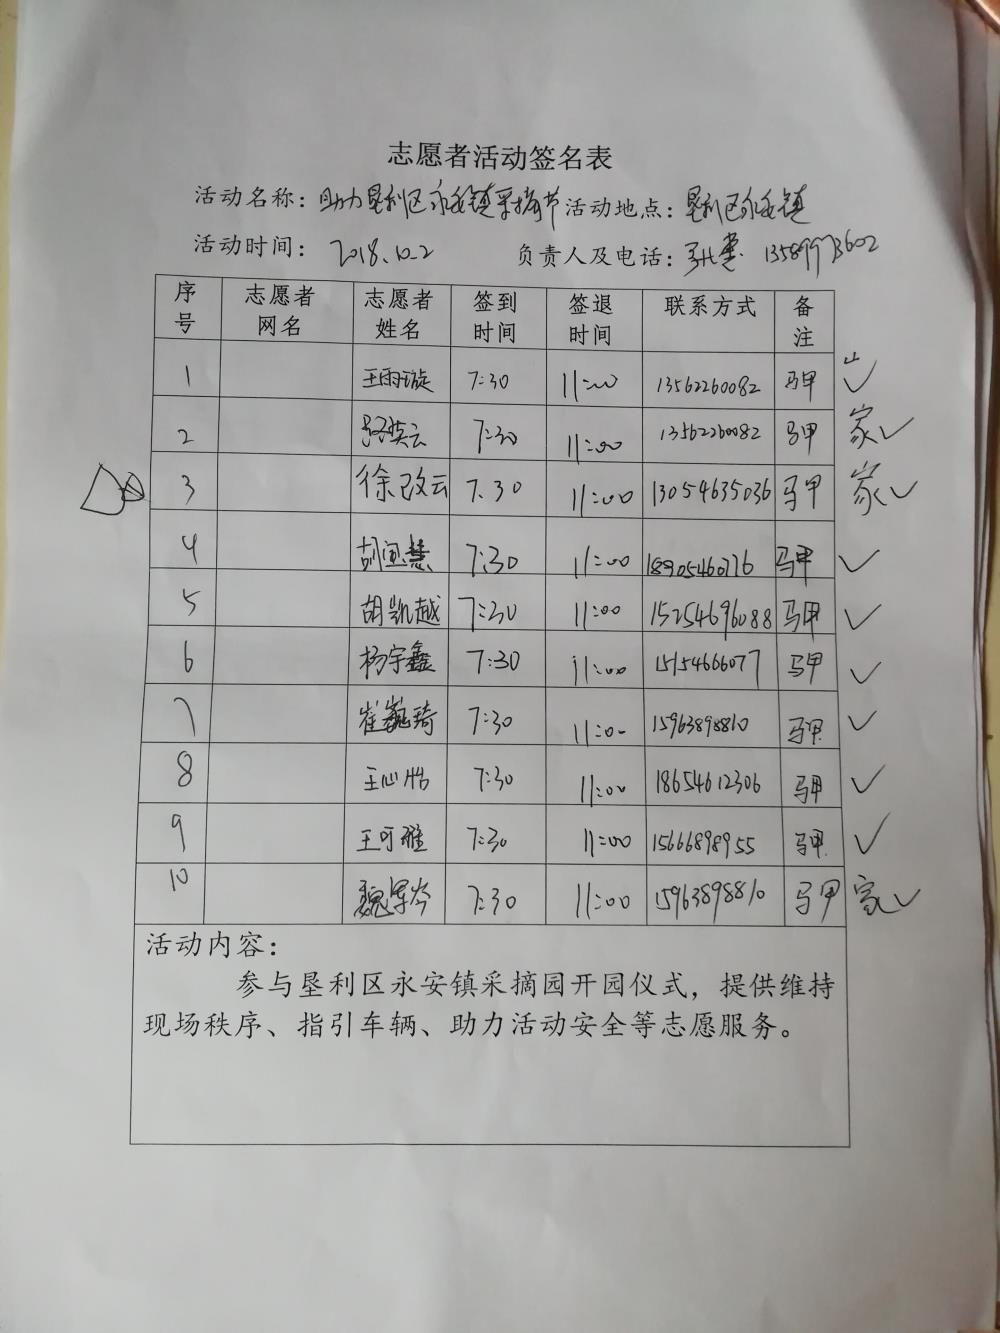 志愿者活动签名表
活动名称：助力垦利区永安镇采摘节 活动地点：垦利区永安镇
活动时间：2018.10.2 负责人及电话：张惠 13589973602
序号 志愿者网名 志愿者姓名 签到时间 签退时间 联系方式 备注
1 王雨璇 7:30 11:00 13562260082 马甲 ✓
2 英云 7:30 11:00 13562260082 马甲 家✓
3 徐改云 7.30 11:00 13054635036 马甲 家✓
4 胡慧 7:30 11:00 18905460776 马甲 ✓
5 胡凯越 7:30 11:00 15254696088 马甲 ✓
6 杨宇鑫 7:30 11:00 15154666077 马甲 ✓
7 崔巍琦 7:30 11:00 15963898810 马甲 ✓
8 王心怡 7:30 11:00 18654612306 马甲 ✓
9 王可雅 7:30 11:00 15666898955 马甲 ✓
10 魏岑 7:30 11:00 15963898810 马甲 家✓
活动内容：
参与垦利区永安镇采摘园开园仪式，提供维持
现场秩序、指引车辆、助力活动安全等志愿服务。